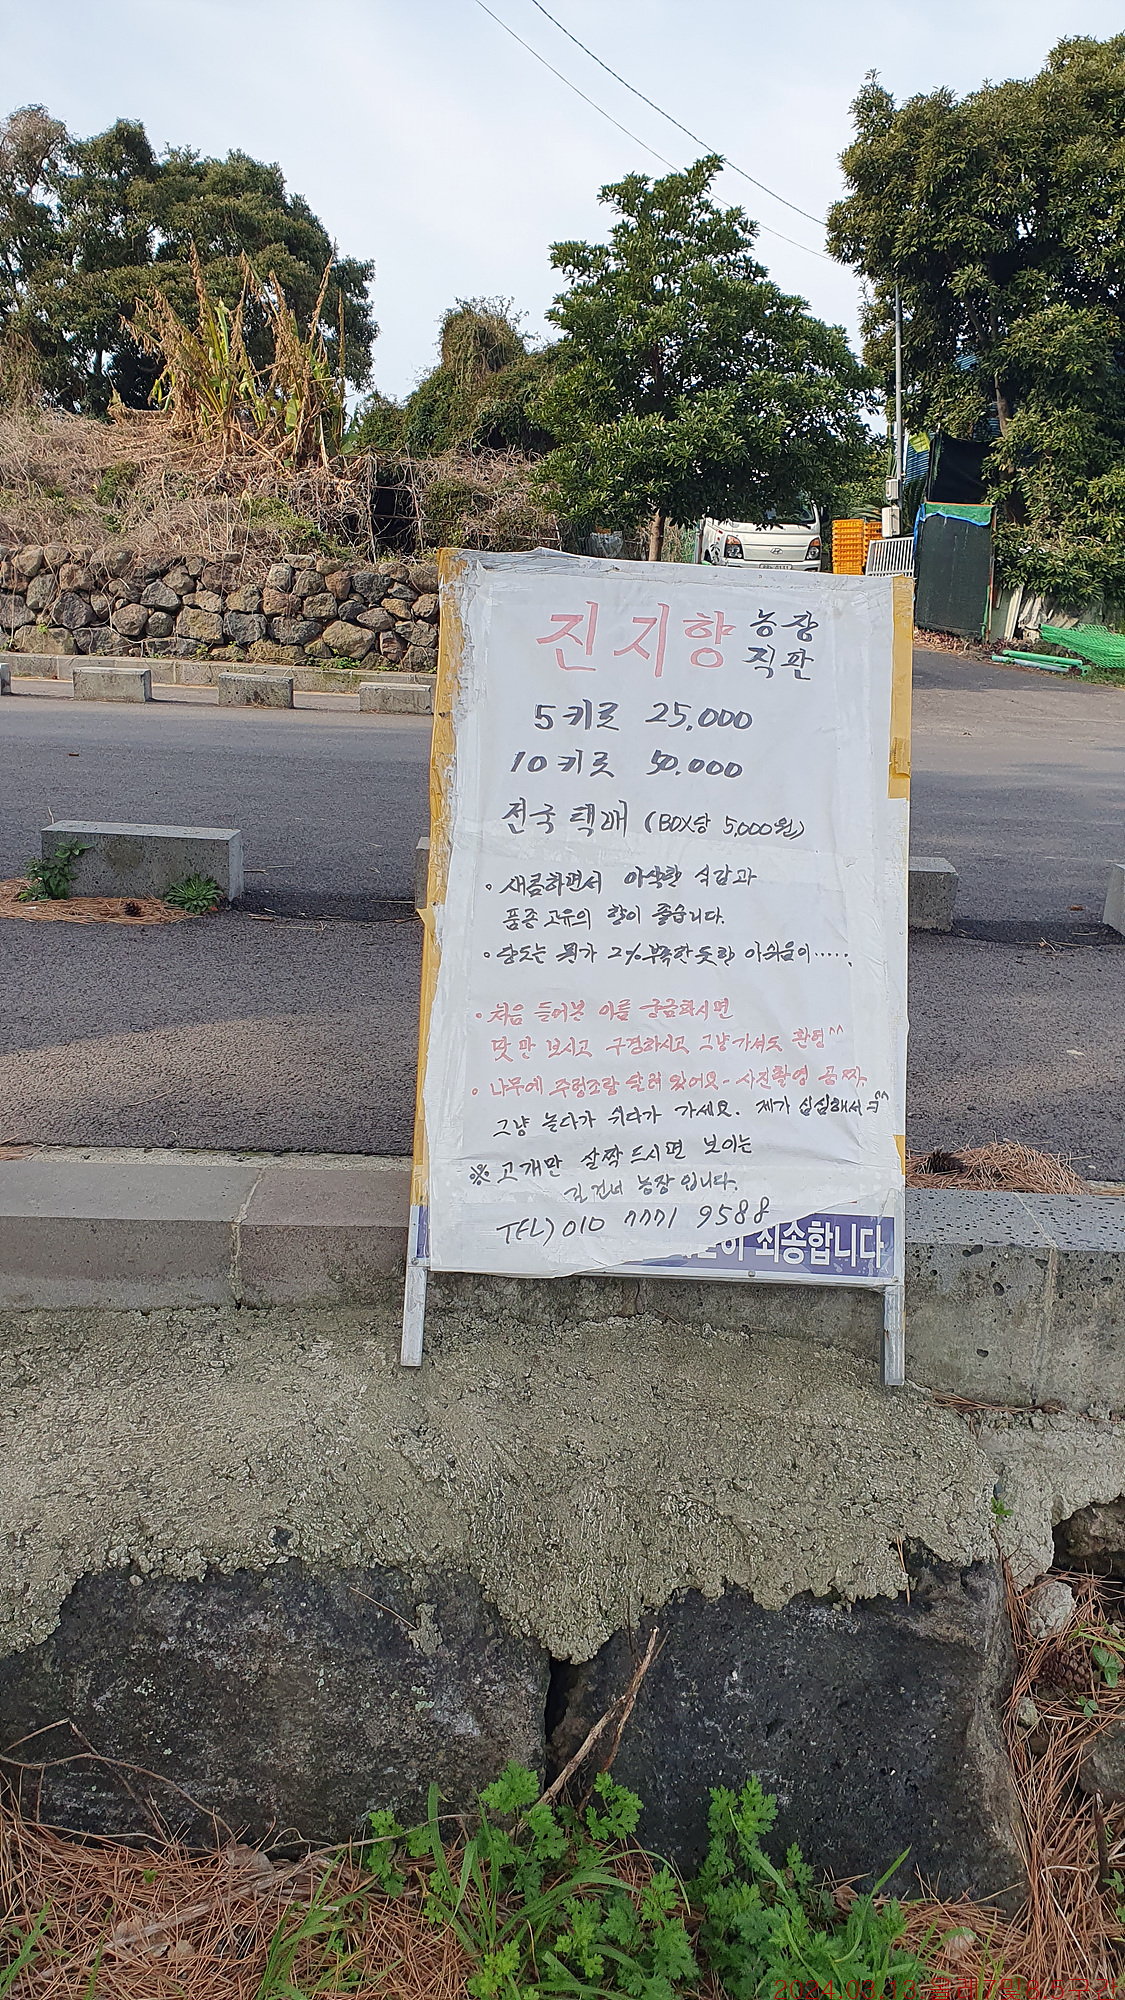 진지향 농장
직판
5키로 25,000
10키로 50,000
전국택배 (BOX당 5,000원)
· 새콤하면서 아삭한 식감과
품종고유의 향이 좋습니다.
· 당도는 뭔가 2%부족한듯한 아쉬움이.....
· 처음 들어본 이름 궁금하시면
맛만 보시고 구경하시고 그냥가셔도 환영^^
· 나무에 주렁조랑 달려 있어요- 사진촬영 공짜.
그냥 놀다가 쉬다가 가세요. 제가 심심해서
※ 고개만 살짝 드시면 보이는
길건너 농장 입니다.
TEL) 010 7771 9588
죄송합니다
2024.03.13.올레7및8.5구간